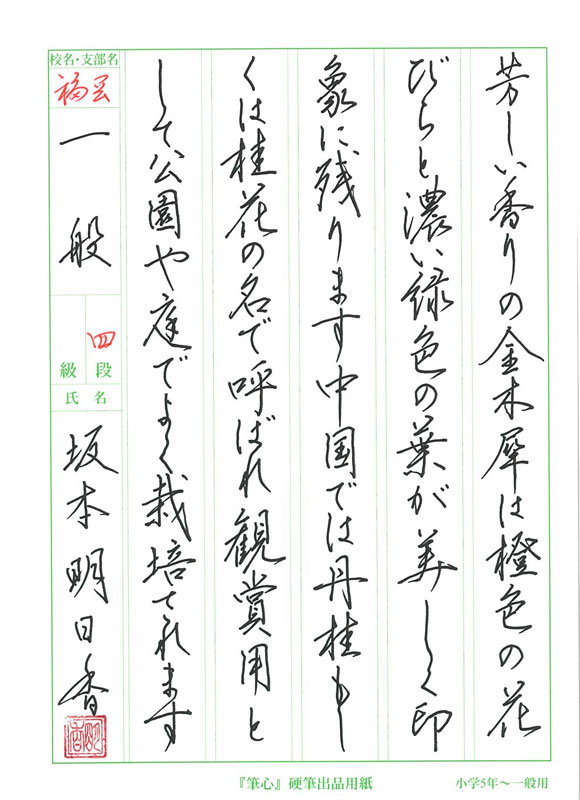 芳しい香りの金木犀は橙色の花
びらと濃い緑色の葉が美しく印
象に残ります中国では丹桂もし
くは桂花の名で呼ばれ観賞用と
して公園や庭でよく栽培されます
校名・支部名
福岡
一般
四
級 段
氏名
坂本明日香
『筆心』硬筆出品用紙
小学5年〜一般用